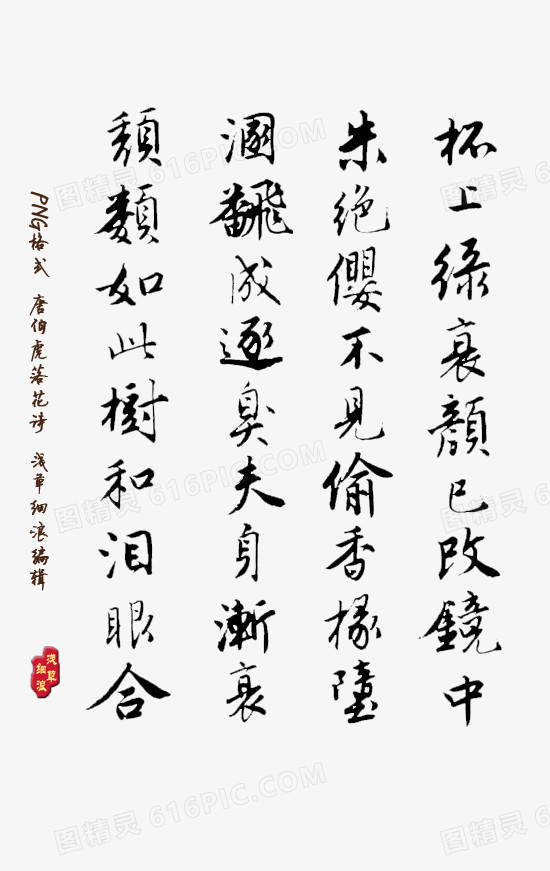 杯上綠衰顏已改鏡中
朱絕纓不見偷香掾墮
溷飜成逐臭夫身漸衰
頹類如此樹和泪眼合
PNG格式 唐伯虎落花诗 浅草细浪编辑
浅草
细浪
图精灵 616PIC.COM